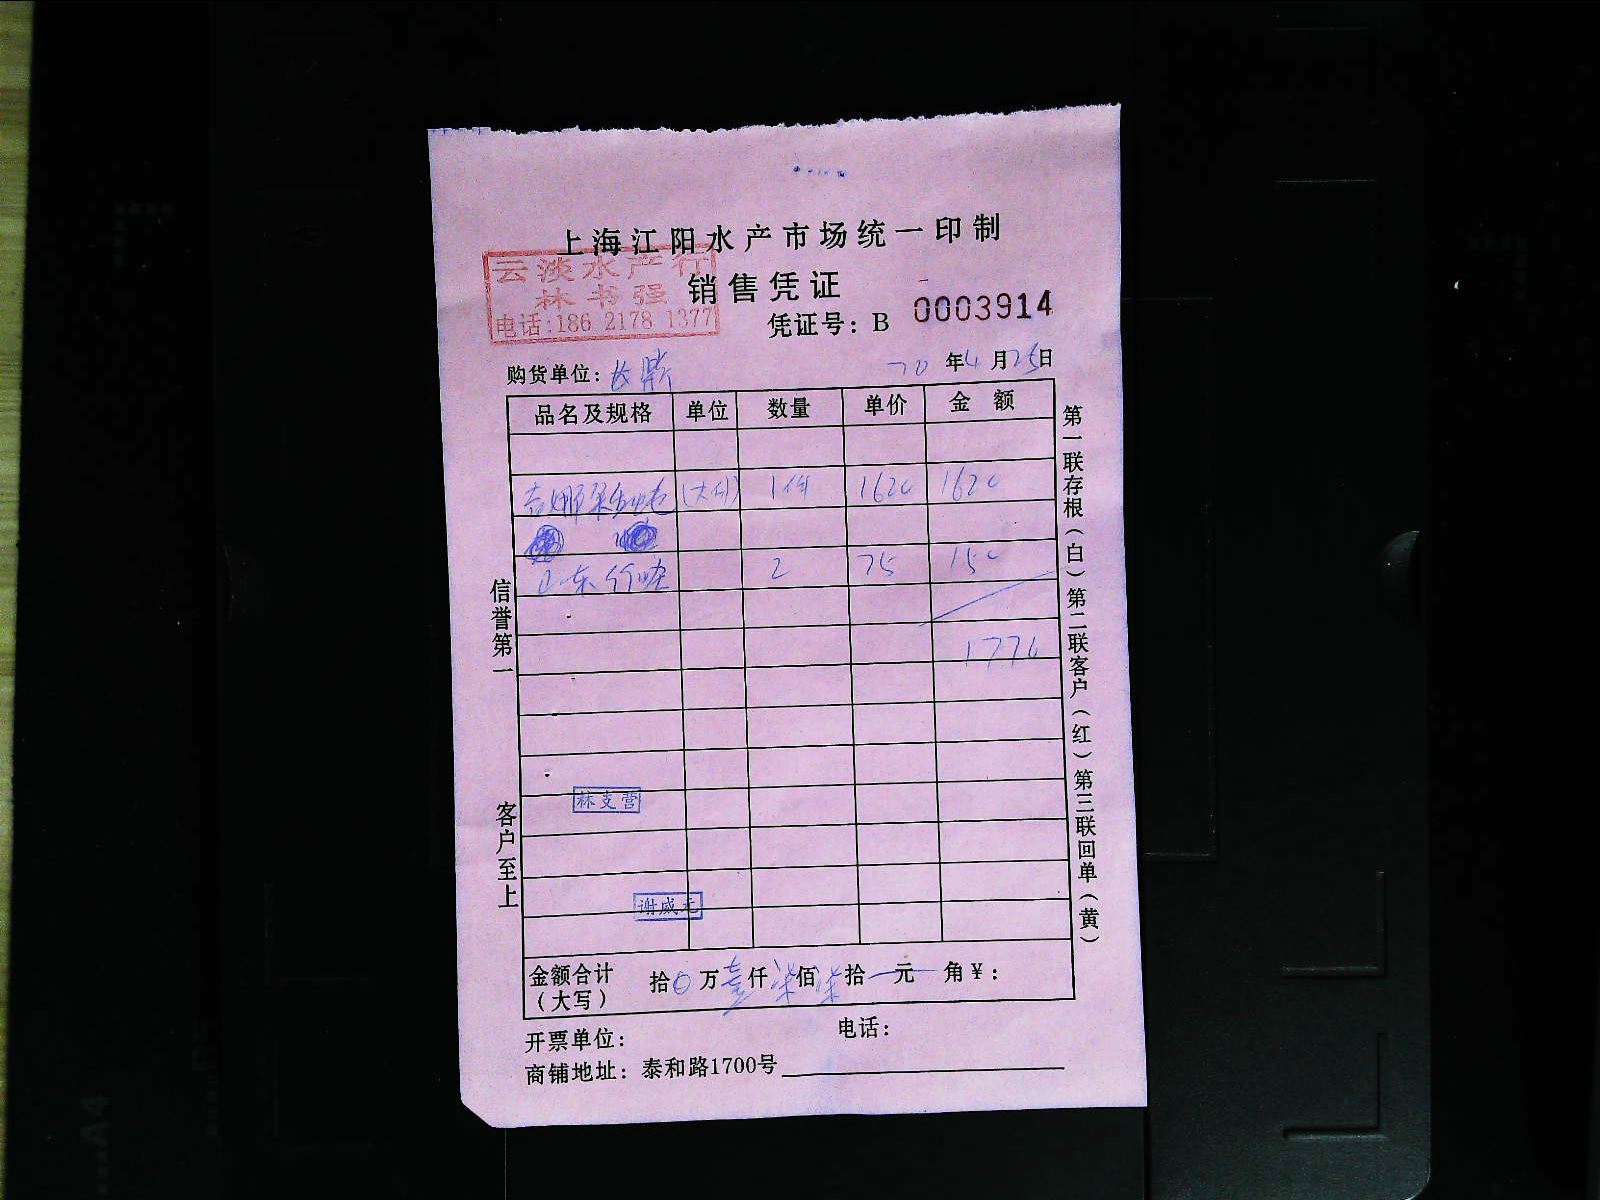 上海江阳水产市场统一印制
云淡水产行
林书强
电话:186 2178 1377
销售凭证
凭证号：B 0003914
购货单位：长鼎 20年4月25日
品名及规格 单位 数量 单价 金额
(大介) 1件 1620 1620
山东 2 75 150
1770
林支营
谢成元
金额合计（大写） 拾0万壹仟柒佰柒拾一元 角¥：
开票单位： 电话：
商铺地址：泰和路1700号
信誉第一
客户至上
第一联存根（白）第二联客户（红）第三联回单（黄）